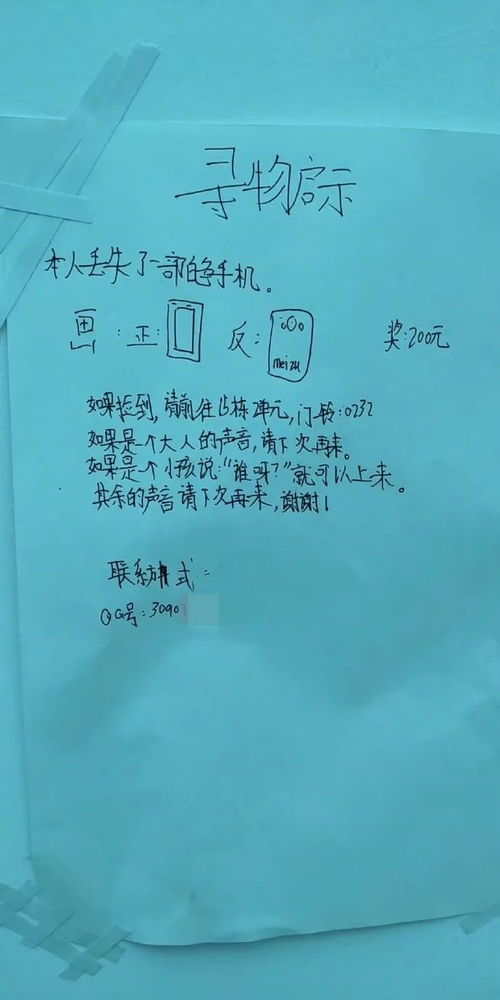 寻物启示
本人丢失了一部白色手机。
画:正: 反: meizu 奖:200元
如果捡到,请前往15栋2单元,门铃:0232
如果是个大人的声音,请下次再来。
如果是个小孩说:“谁呀?”就可以上来。
其余的声音请下次再来,谢谢!
联系方式:
QQ号:3090